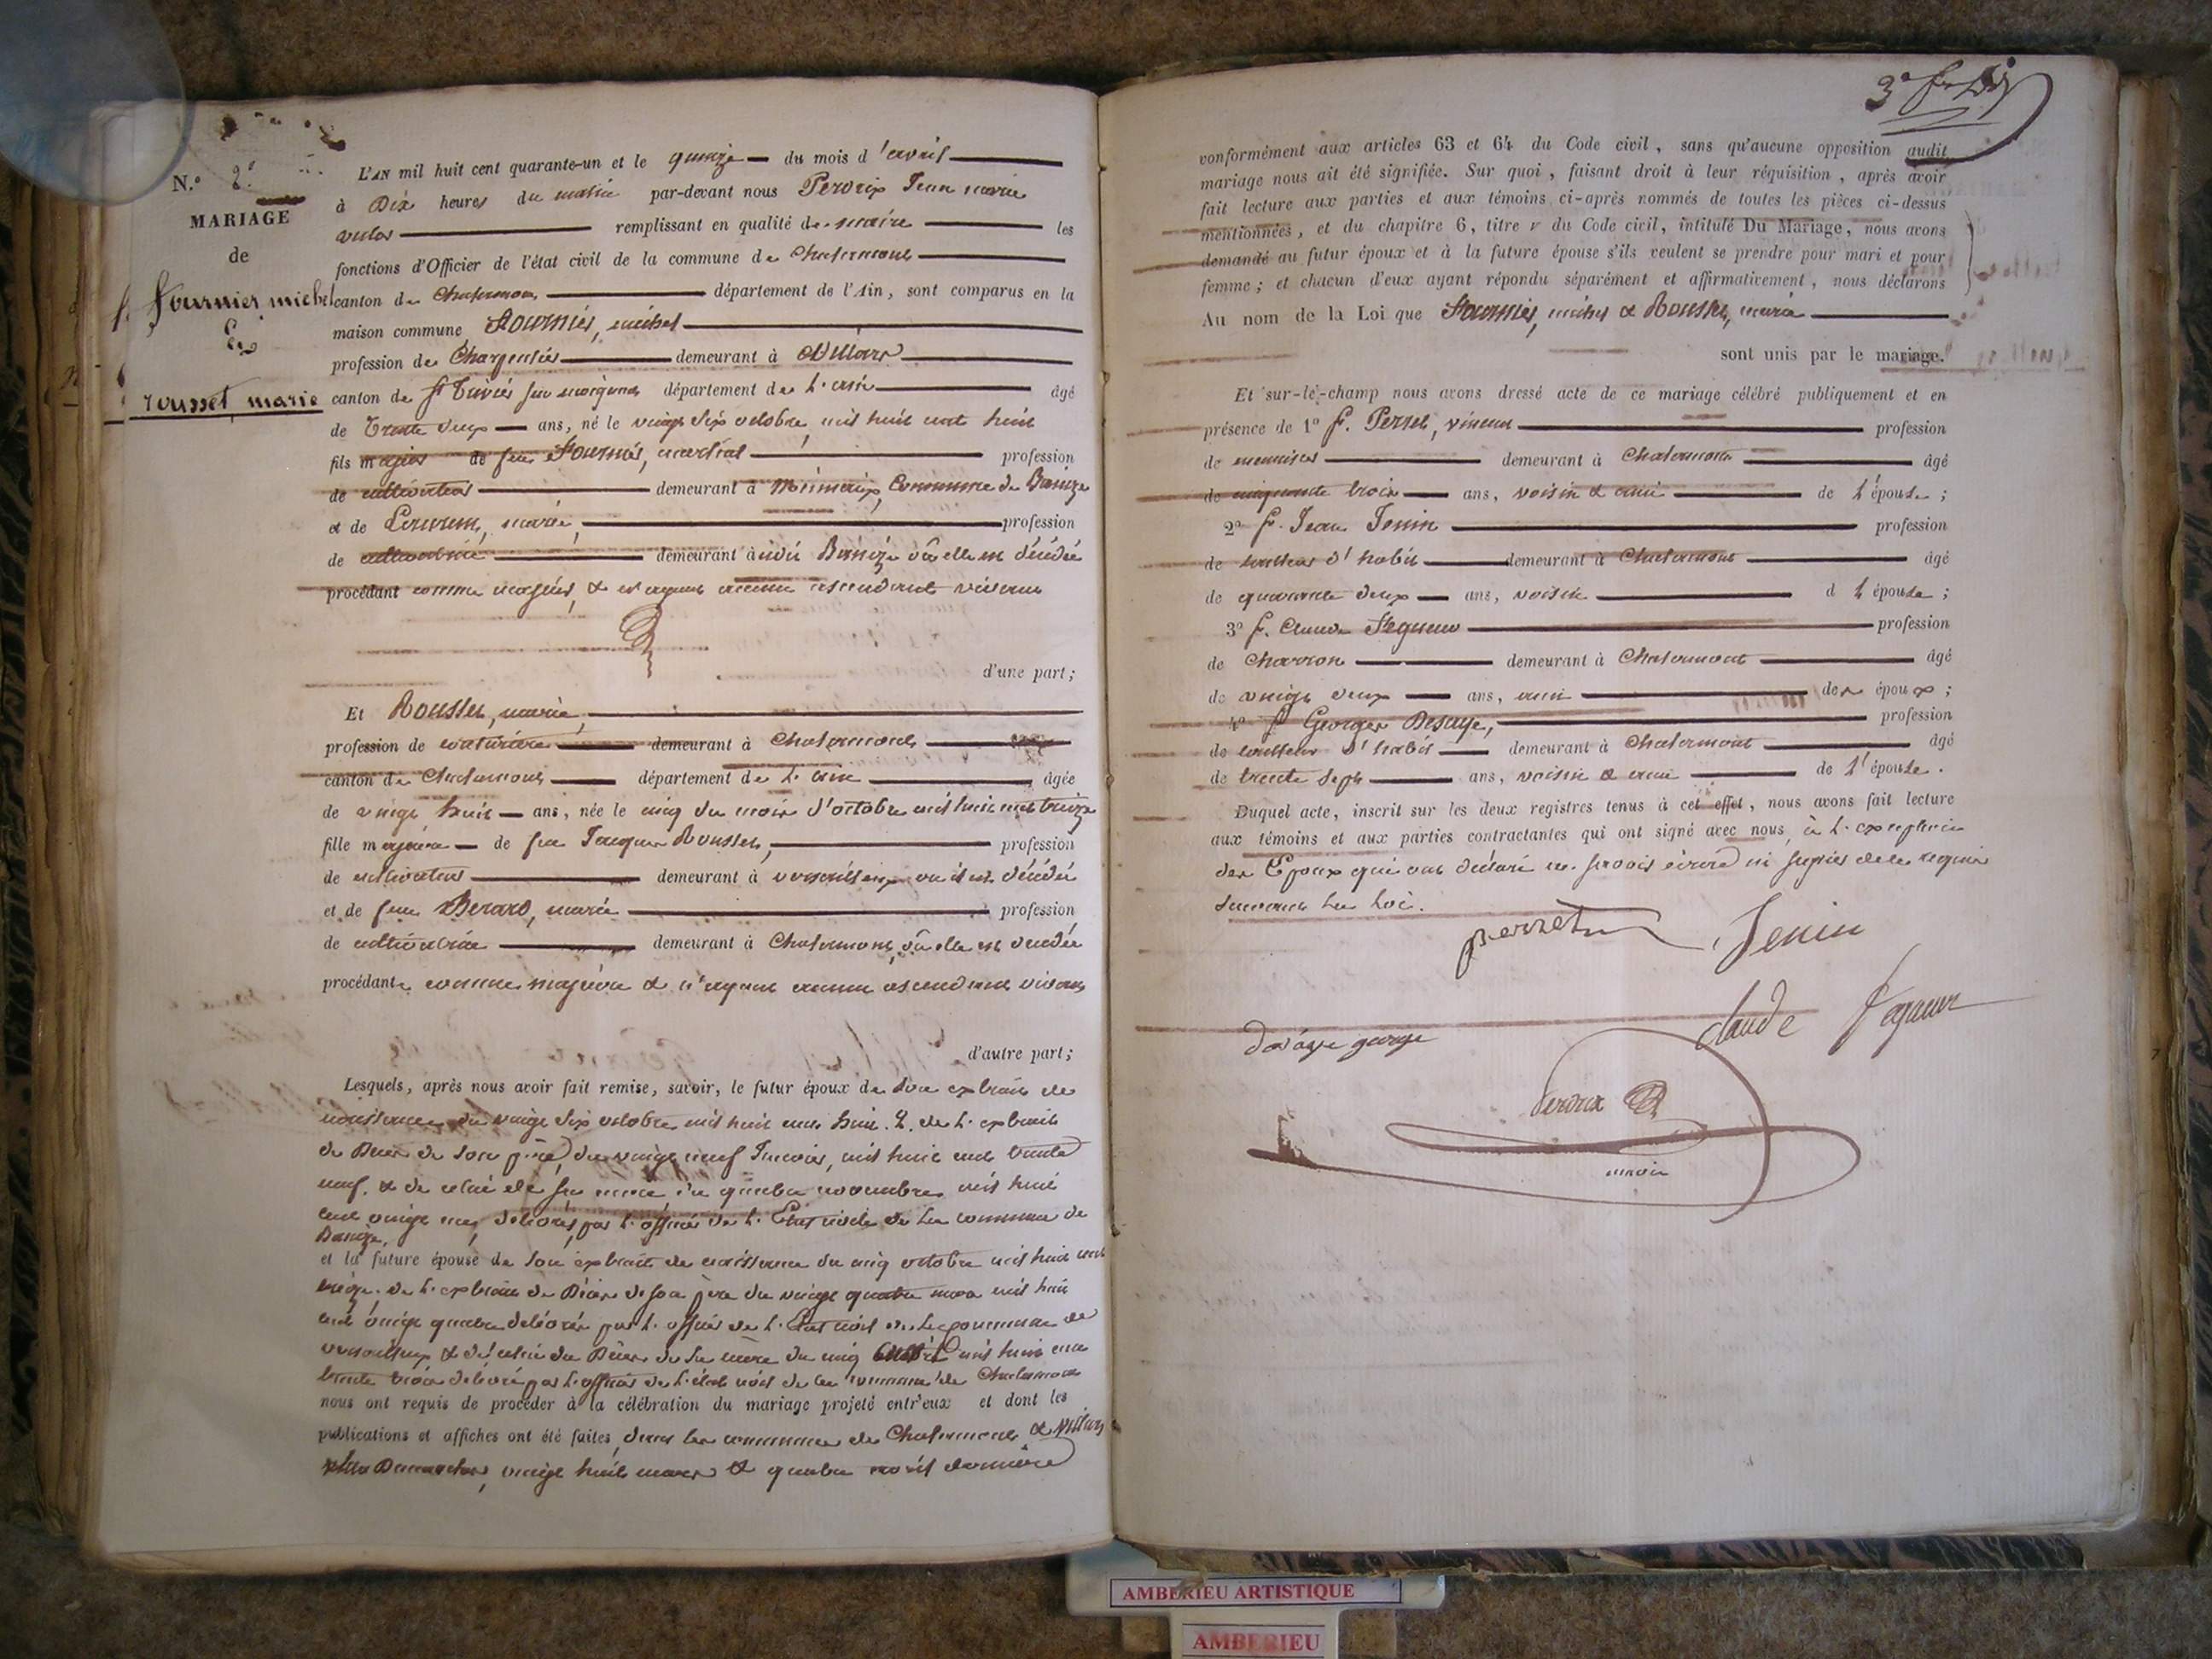 N.° 2.
MARIAGE
de
Fournier, michel
&
rousset, marie
L'AN mil huit cent quarante-un et le quinze du mois d'avril
à Dix heures du matin par-devant nous Perdrix Jean marie
remplissant en qualité de maire les
fonctions d'Officier de l'état civil de la commune de Chalamont
canton de Chalamont département de l'Ain, sont comparus en la
maison commune Fournier, michel
profession de Charpentier demeurant à Villars
canton de St Trivier sur moignans département de l'ain âgé
de Trente deux ans, né le vingt six octobre mil huit cent huit
fils majeur de feu Fournier, martial profession
de cultivateur demeurant à commune de Banize
et de marie, profession
de cultivatrice demeurant à Banize où elle est décédée
procédant comme majeur, & n'ayant aucun ascendant vivant
d'une part;
Et Rousset, marie,
profession de couturière demeurant à Chalamont
canton de Chalamont département de l'ain âgée
de vingt huit ans, née le cinq du mois d'octobre mil huit cent treize
fille majeure de feu Jacques Rousset, profession
de cultivateur demeurant à versailleux où il est décédé
et de feue Berard, marie profession
de cultivatrice demeurant à Chalamont, où elle est décédée
procédante comme majeure & n'ayant aucun ascendant vivant
d'autre part;
Lesquels, après nous avoir fait remise, savoir, le futur époux de son extrait de
naissance du vingt six octobre mil huit cent huit. 2. de l'extrait
de Décès de son père, du vingt neuf Janvier, mil huit cent trente
neuf, & de celui de sa mère du quatre novembre mil huit
cent vingt délivrés par l'officier de l'Etat civil de la commune de
Banize,
et la future épouse de son extrait de naissance du cinq octobre mil huit cent
treize. de l'extrait de Décès de son père du vingt quatre mars mil huit
cent vingt quatre délivrés par l'officier de l'Etat civil de la commune de
versailleux & de celui du Décès de sa mère du cinq mil huit cent
trente trois délivré par l'officier de l'état civil de la commune de Chalamont
nous ont requis de procéder à la célébration du mariage projeté entr'eux et dont les
publications et affiches ont été faites, dans les communes de Chalamont & Villars
Dimanches, vingt huit mars & quatre avril dernier
3e
conformément aux articles 63 et 64 du Code civil, sans qu'aucune opposition audit
mariage nous ait été signifiée. Sur quoi, faisant droit à leur réquisition, après avoir
fait lecture aux parties et aux témoins ci-après nommés de toutes les pièces ci-dessus
mentionnées, et du chapitre 6, titre v du Code civil, intitulé Du Mariage, nous avons
demandé au futur époux et à la future épouse s'ils veulent se prendre pour mari et pour
femme; et chacun d'eux ayant répondu séparément et affirmativement, nous déclarons
Au nom de la Loi que Fournier, michel & Rousset, marie
sont unis par le mariage.
Et sur-le-champ nous avons dressé acte de ce mariage célébré publiquement et en
présence de 1° Perret, vincent profession
de menuisier demeurant à Chalamont âgé
de cinquante trois ans, voisin & ami de l'épouse;
2° Jean Jenin profession
de tailleur d'habit demeurant à Chalamont âgé
de quarante deux ans, voisin d l'épouse;
3° Claude profession
de charron demeurant à Chalamont âgé
de vingt deux ans, ami des époux;
4° Georges Desaye, profession
de tailleur d'habit demeurant à Chalamont âgé
de trente sept ans, voisin & ami de l'épouse.
Duquel acte, inscrit sur les deux registres tenus à cet effet, nous avons fait lecture
aux témoins et aux parties contractantes qui ont signé avec nous, à l'exception
des Epoux qui ont déclaré ne savoir écrire ni signer de ce requis
suivant la Loi.
perret
Jenin
claude
george
perdrix
maire
AMBERIEU ARTISTIQUE
AMBERIEU